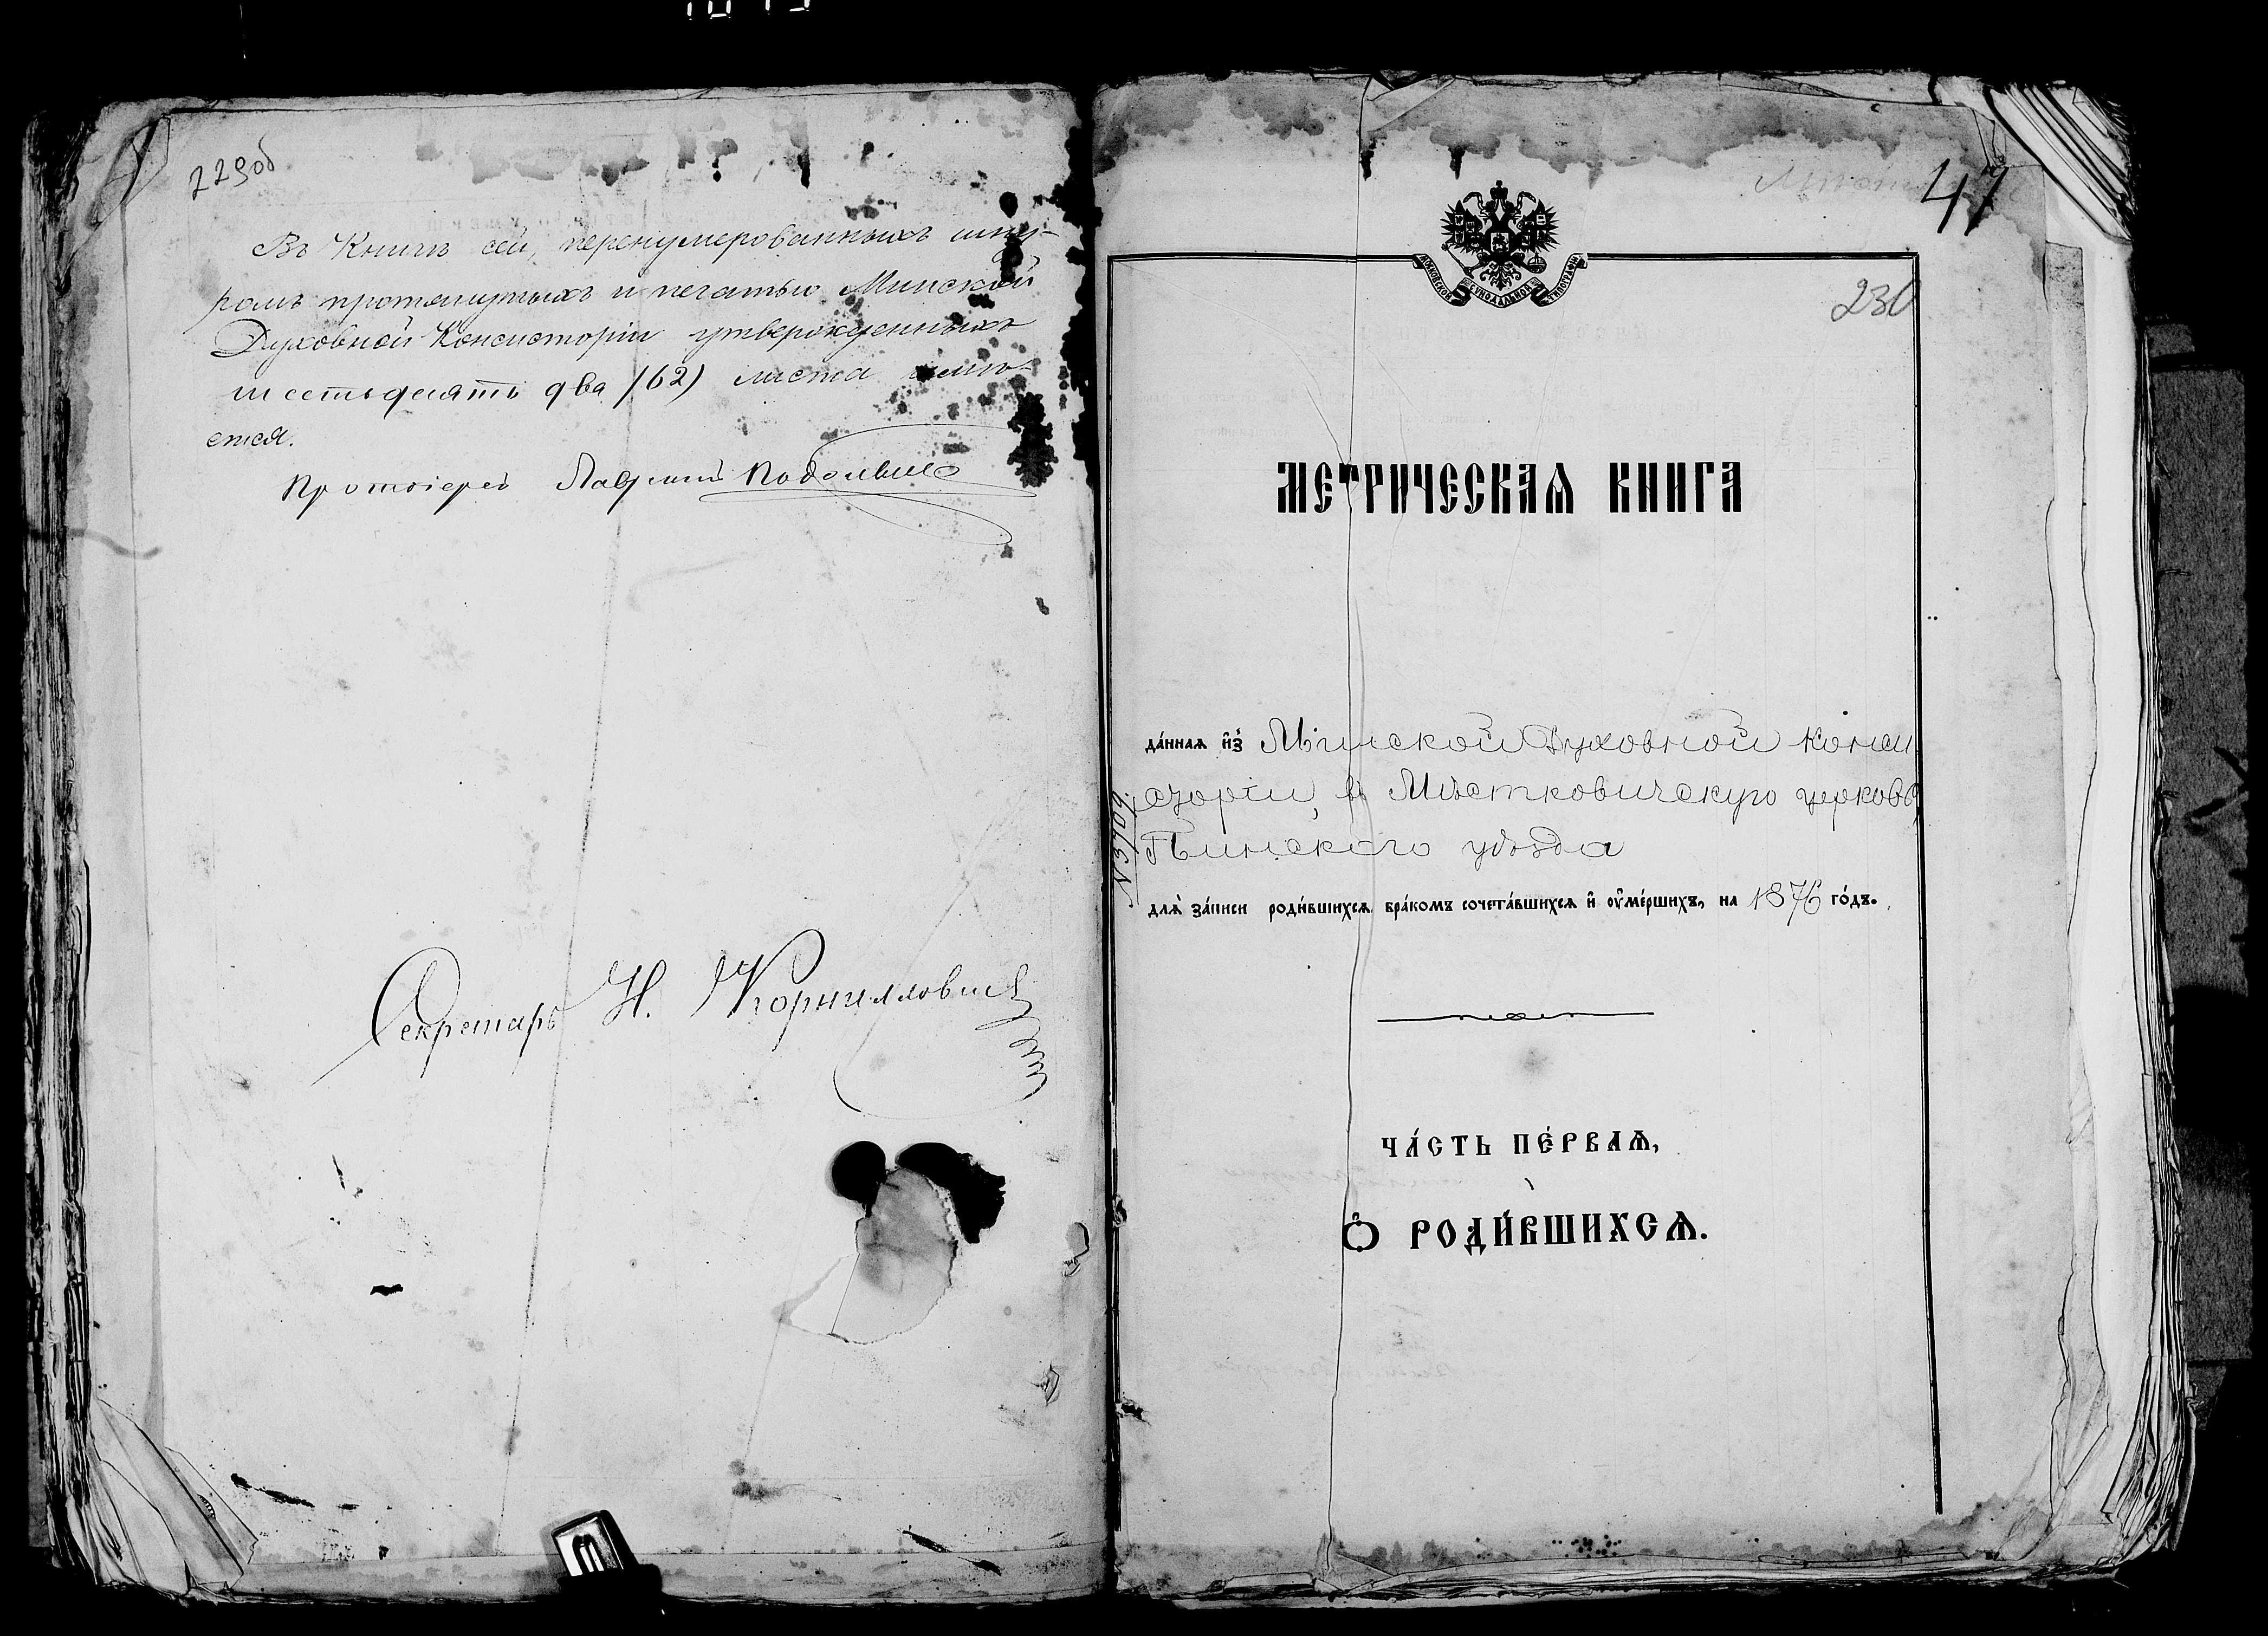 229об
Въ Книгѣ сей, перенумерованныхъ шну-
ромъ протянутыхъ и печатью Минской
Духовной Консисторіи утвержденныхъ
шестьдесятъ два (62) листа имѣ-
ется.
Протоіерей Лаврентій
Секретарь Н. Корниллович
47
230
МОСКОВСКОЙ СѴНОДАЛЬНОЙ ТИПОГРАФІИ
МЕТРИЧЕСКАѦ КНИГА
да́ннаѧ и҆з̾ Минской Духовной Конси
сторіи, въ Мѣстковичскую церковь,
Пинскаго уѣзда
№ 3709.
длѧ̀ за́писи роди́вшихсѧ бра́комъ сочета́вшихсѧ и҆ оу҆ме́ршихъ, на 1876 го́дъ.
ЧА́СТЬ ПЕ́РВАѦ,
Ѽ РОДИ́ВШИХСѦ.